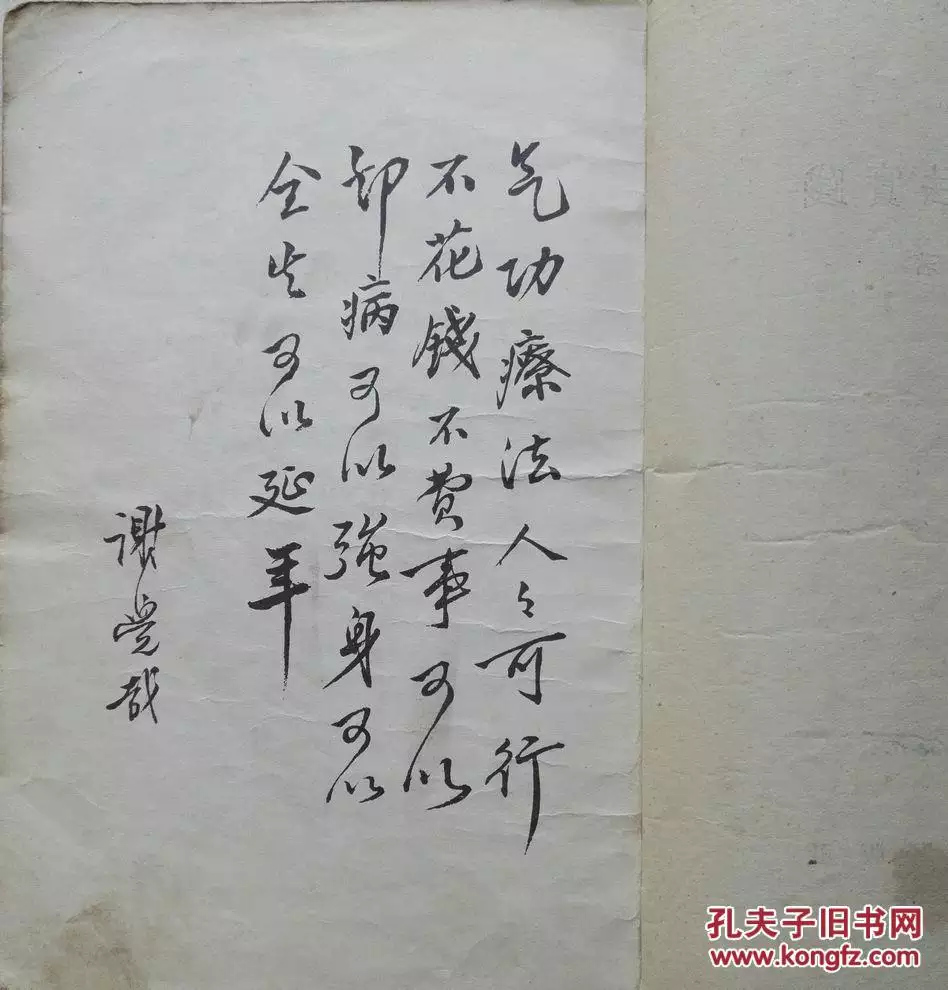 气功療法人々可行
不花錢不費事可以
却病可以強身可以
全生可以延年
謝觉哉
孔夫子旧书网
www.kongfz.com